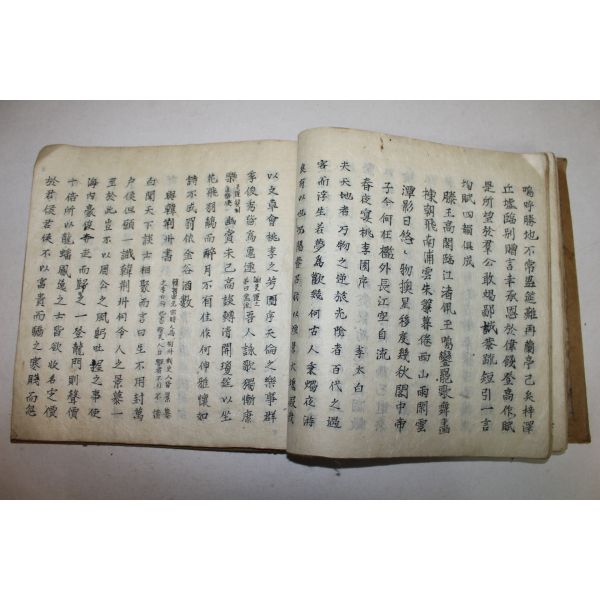 嗚呼勝地不常盛筵難再蘭亭已矣梓澤
丘墟臨別贈言幸承恩於偉餞登高作賦
是所望於羣公敢竭鄙誠恭疏短引一言
均賦四韻俱成
滕王高閣臨江渚佩玉鳴鸞罷歌舞畵
棟朝飛南浦雲朱簾暮捲西山雨閑雲
潭影日悠〻物換星移度幾秋閣中帝
子今何在檻外長江空自流
春夜宴桃李園序 李太白
夫天地者万物之逆旅光陰者百代之過
客而浮生若夢為歡幾何古人秉燭夜游
良有以也況陽春召我以烟景大塊假我
以文章會桃李之芳園序天倫之樂事群
季俊秀皆為惠連吾人詠歌獨慚康
樂幽賞未已高談轉淸開瓊筵以坐
花飛羽觴而醉月不有佳作何伸雅懷如
詩不成罰依金谷酒數
與韓荊州書
白聞天下談士相聚而言曰生不用封萬
户侯但願一識韓荊州何令人之景慕一
至於此豈不以周公之風躬吐握之事使
海內豪俊奔走而歸之一登龍門則聲價
十倍所以龍蟠鳳逸之士皆欲收名定價
於君侯君侯不以富貴而驕之寒賤而忽